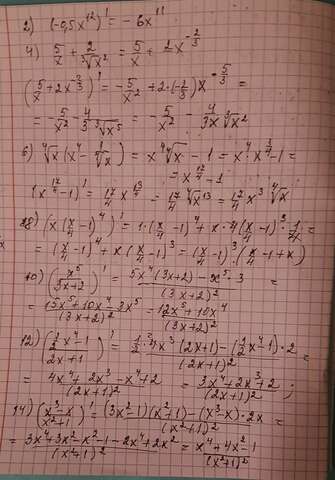 2) (-0,5x¹²)' = -6x¹¹
4) 5/x + 2/∛x² = 5/x + 2x^(-2/3)
(5/x + 2x^(-2/3))' = -5/x² + 2·(-2/3)x^(-5/3) =
= -5/x² - 4/(3∛x⁵) = -5/x² - 4/(3x∛x²)
6) ⁴√x (x⁴ - 1/⁴√x) = x⁴ ⁴√x - 1 = x⁴·x^(1/4) - 1 =
= x^(17/4) - 1
(x^(17/4) - 1)' = 17/4 x^(13/4) = 17/4 ⁴√x¹³ = 17/4 x³ ⁴√x
8) (x(x/4 - 1)⁴)' = 1·(x/4 - 1)⁴ + x·4(x/4 - 1)³·1/4 =
= (x/4 - 1)⁴ + x(x/4 - 1)³ = (x/4 - 1)³(x/4 - 1 + x)
10) (x⁵/(3x+2))' = (5x⁴(3x+2) - x⁵·3)/(3x+2)² =
= (15x⁵ + 10x⁴ - 3x⁵)/(3x+2)² = (12x⁵ + 10x⁴)/(3x+2)²
12) ((1/2 x⁴ - 1)/(2x+1))' = (1/2·4x³(2x+1) - (1/2 x⁴ - 1)·2)/(2x+1)² =
= (4x⁴ + 2x³ - x⁴ + 2)/(2x+1)² = (3x⁴ + 2x³ + 2)/(2x+1)² ;
14) ((x³ - x)/(x²+1))' = ((3x² - 1)(x²+1) - (x³ - x)·2x)/(x²+1)² =
= (3x⁴ + 3x² - x² - 1 - 2x⁴ + 2x²)/(x²+1)² = (x⁴ + 4x² - 1)/(x²+1)²